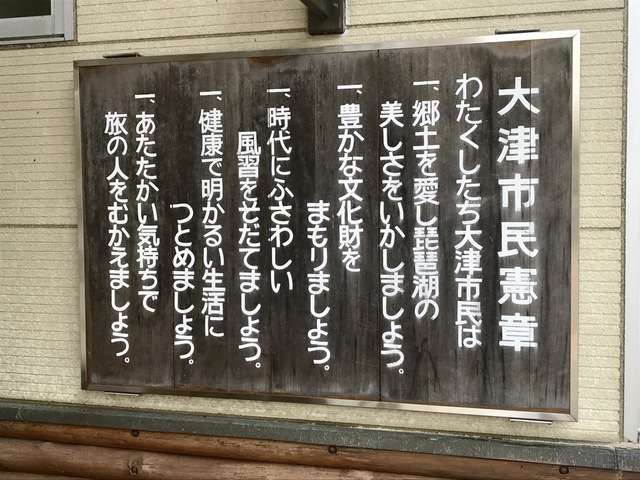 大津市民憲章
わたくしたち大津市民は
一、郷土を愛し琵琶湖の
美しさをいかしましょう。
一、豊かな文化財を
まもりましょう。
一、時代にふさわしい
風習をそだてましょう。
一、健康で明かるい生活に
つとめましょう。
一、あたたかい気持ちで
旅の人をむかえましょう。